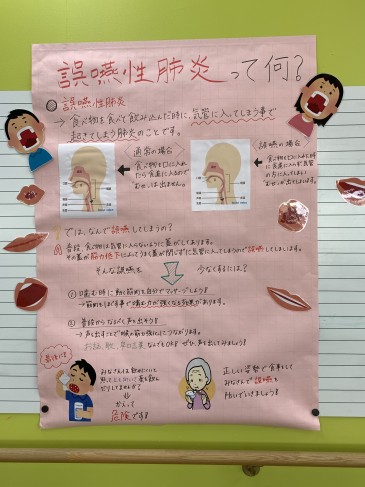 誤嚥性肺炎って何?
◎誤嚥性肺炎
→食べ物を食べて飲み込んだ時に、気管に入ってしまう事で
起きてしまう肺炎のことです。
通常の場合
食べ物を口に入れ
たら食道に入るので
むせは出ません。
誤嚥の場合
食べ物を口に入れた時
に食道に入らず気管
の方に入ってしまい
むせが出てしまいます。
Q では、なんで誤嚥してしまうの?
A 普段、食べ物は気管に入らないように蓋がしてあります。
その蓋が筋力低下によってうまく蓋が閉じずに気管に入ってしまうので誤嚥してしまいます。
そんな誤嚥を
少なくするには?
① 噛む時に動く筋肉を自分でマッサージしよう!
→筋肉をほぐす事で噛む力が強くなる効果があります。
② 普段からなるべく声を出そう!
→声を出すことで喉の筋力強化につながります。
お話、歌、早口言葉 なんでもOK! ぜひ、声を出してみましょう!
最後に!!
みなさんは飲みにくいと
薬を飲ん
だりしてませんか?
かえって
危険です!
正しい姿勢で食事をして
みなさんで誤嚥を
防いでいきましょう!